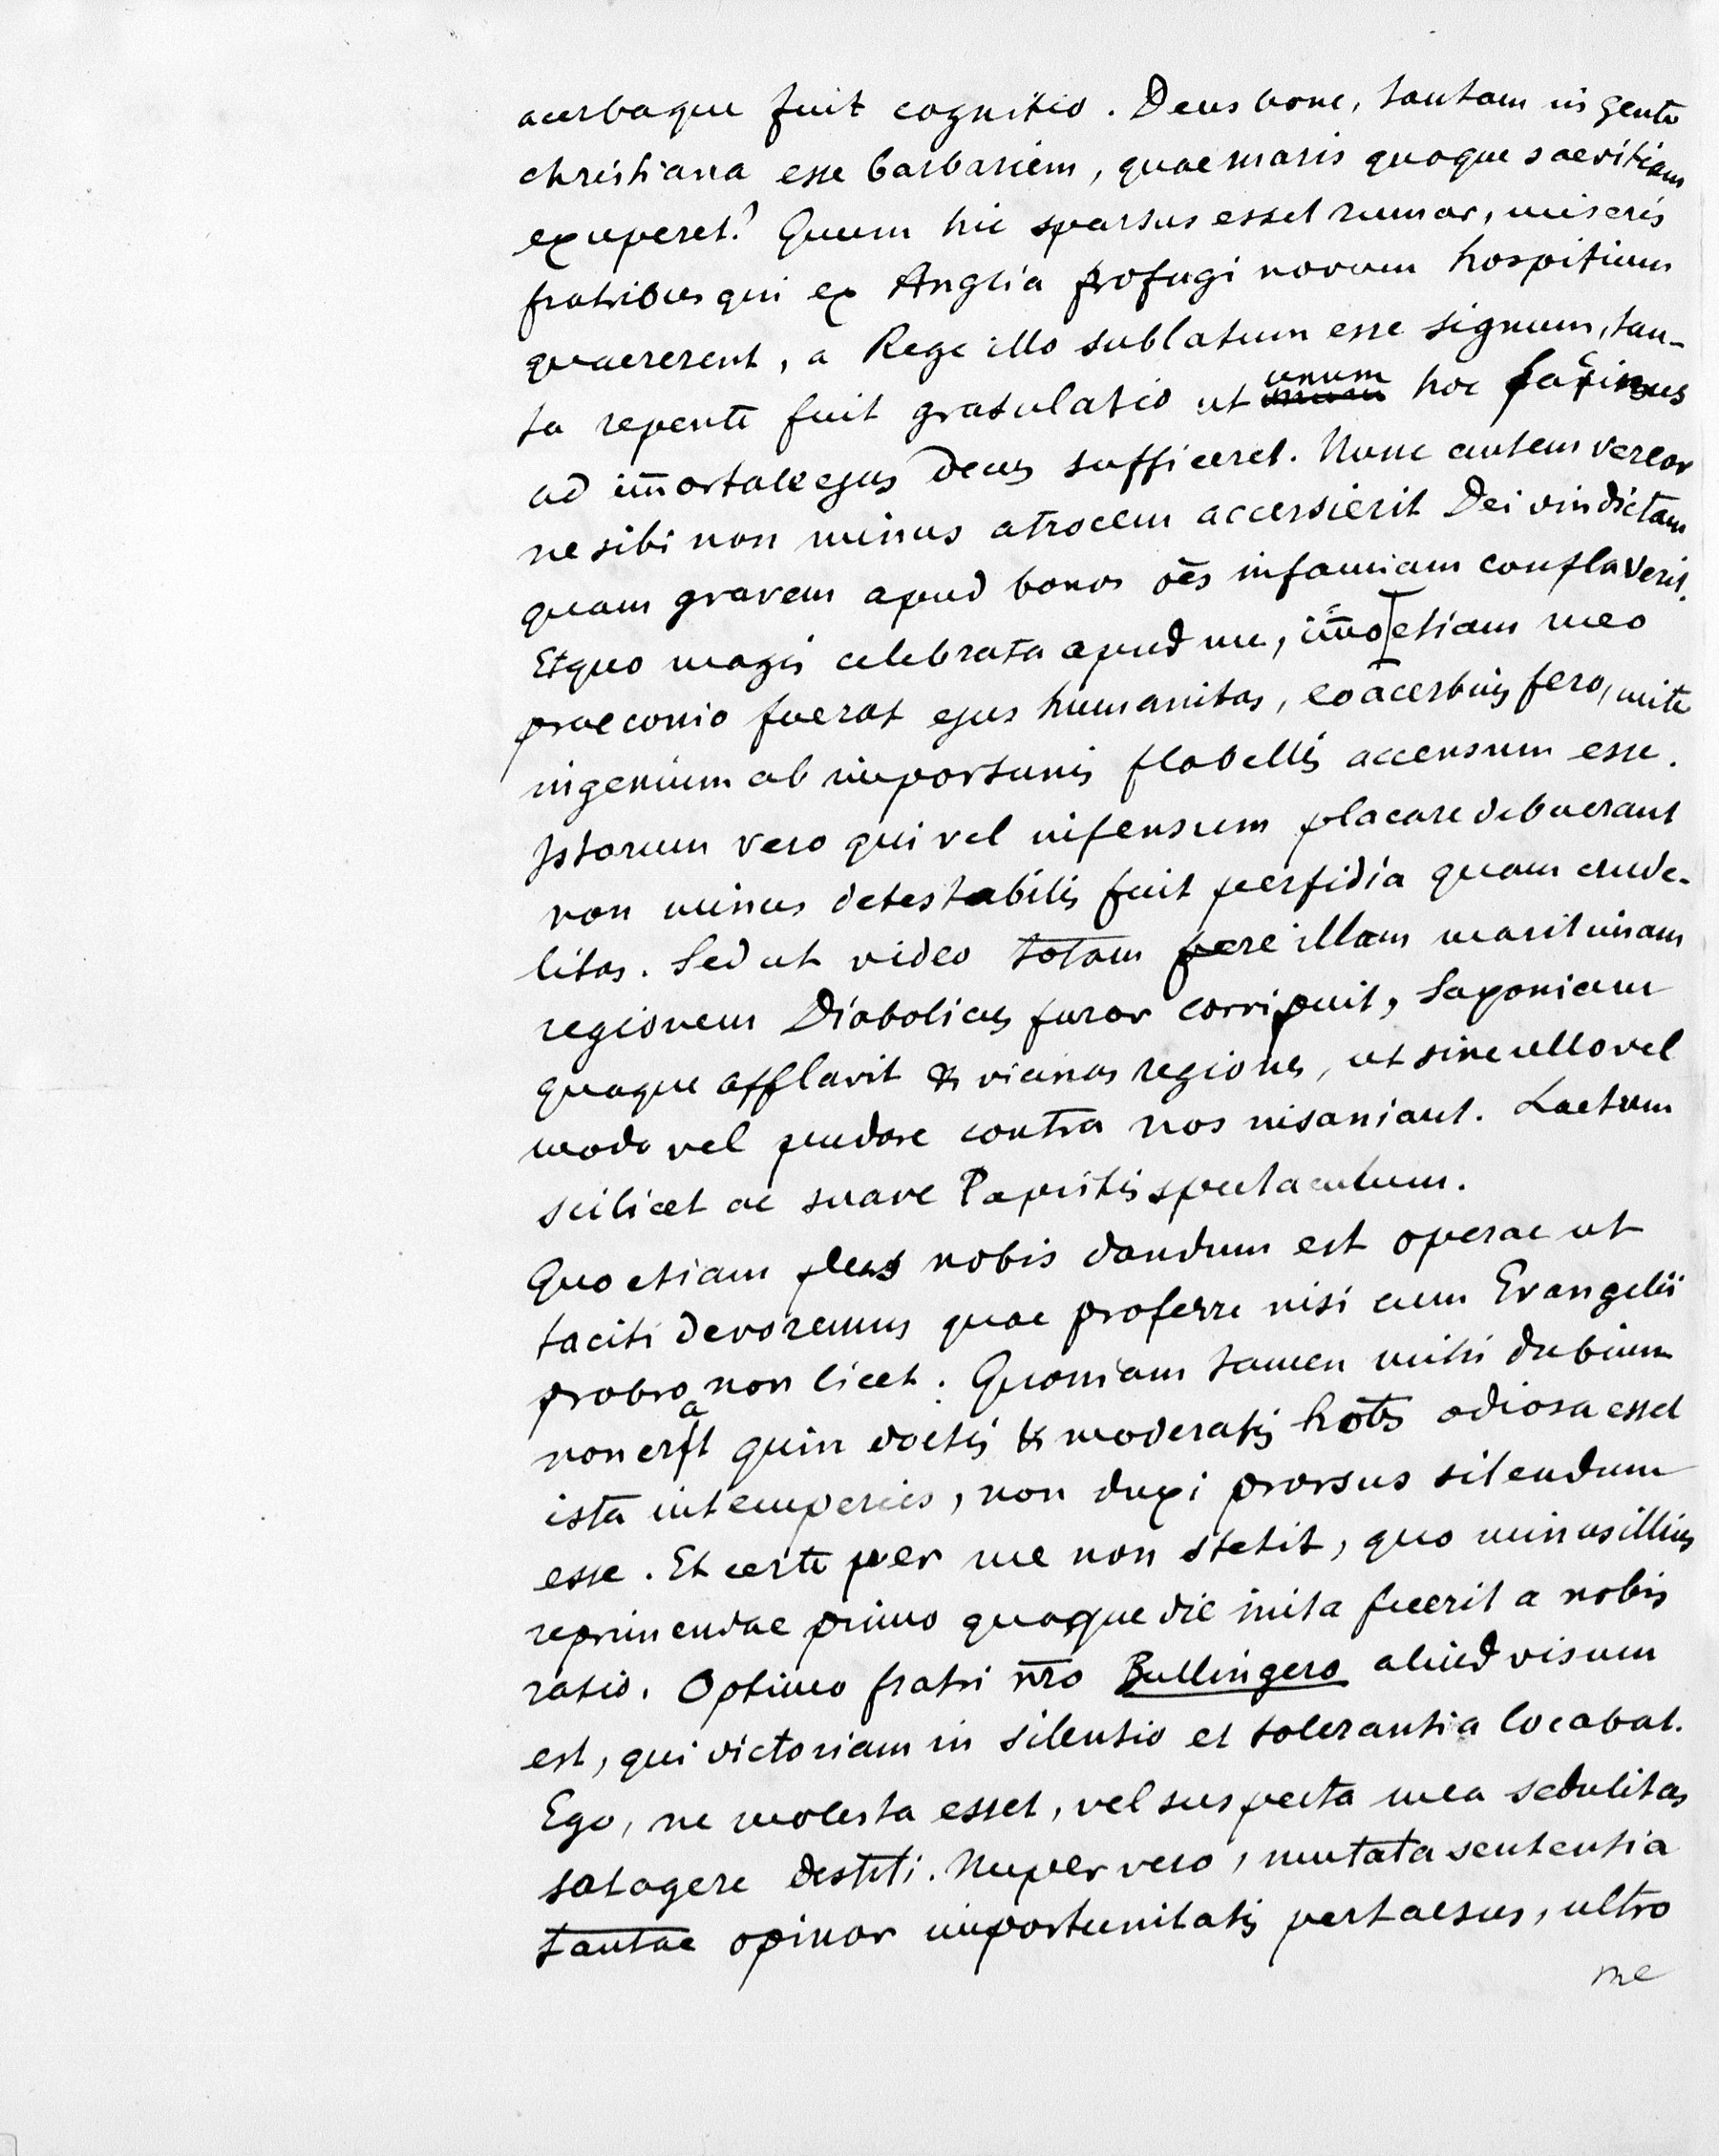 acerbaque fuit cognitio. Deus bone, tantam in gente
christiana esse barbariem, quae maris quoque saevitiam
exuperet? Quum hic sparsus esset rumor, miseris
fratribus qui ex Anglia profugi novum hospitium
quaererent, a Rege illo sublatum esse signum, tan-
ta repente fuit gratulatio ut unum hoc facinus
ad im̄ortale ejus decus sufficeret. Nunc autem vereor
ne sibi non minus atrocem accersierit Dei vindictam
quam gravem apud bonos oēs infamiam conflaverit.
Et quo magis celebrata apud me, im̄o etiam meo
praeconio fuerat ejus humanitas, eo acerbius fero, mite
ingenium ab importunis flabellis accensum esse.
Istorum vero qui vel infensum placare debuerant
non minus detestabilis fuit perfidia quam crude-
litas. Sed ut video totam fere illam maritimam
regionem Diabolicus furor corripuit, Saxoniam
quoque afflavit & vicinas regiones, ut sine ullo vel
modo vel pudore contra nos insaniant. Laetum
scilicet ac suave Papistis spectaculum.
Quo etiam plus nobis dandum est operae ut
taciti devoremus quae proferre nisi cum Evangelii
probro non licet. Quoniam tamen mihi dubium
non erat quin doctis & moderatis hōts odiosa esset
ista intemperies, non duxi prorsus silendum
esse. Et certe per me non stetit, quo minus illius
reprimendae primo quoque die inita fuerit a nobis
ratio. Optimo fratri n̄ro Bullingero aliud visum
est, qui victoriam in silentio et tolerantia locabat.
Ego, ne molesta esset, vel suspecta mea sedulitas
satagere destiti. Nuper vero, mutata sententia
tantae opinor importunitatis pertaesus, ultro
me